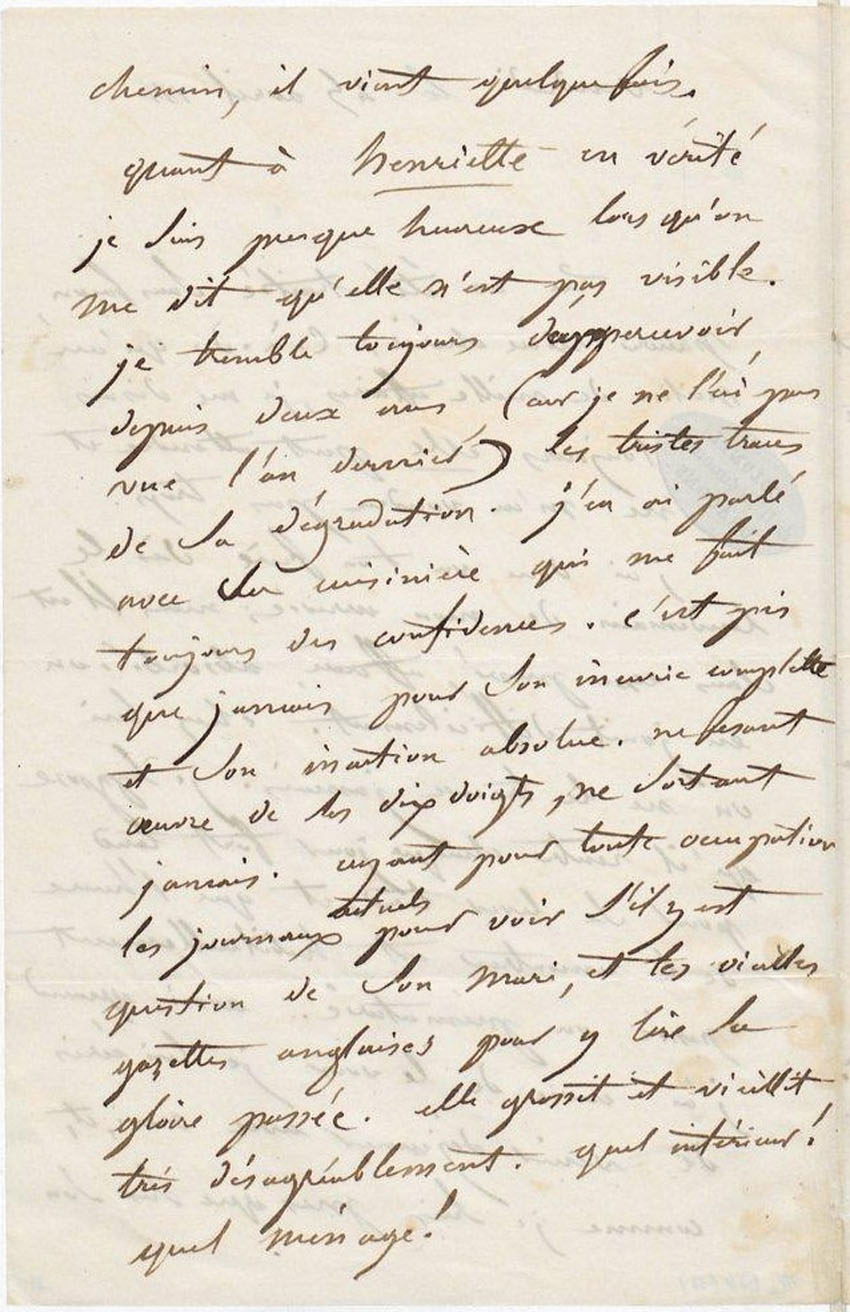 chemin, il vient quelquefois.
quant à henriette en vérité
je suis presque heureuse lors qu'on
me dit qu'elle n'est pas visible.
je tremble toujours d'appercevoir,
depuis deux ans (car je ne l'ai pas
vue l'an dernier) les tristes traces
de sa dégradation. j'en ai parlé
avec sa cuisinière qui me fait
toujours des confidences. c'est pis
que jamais pour son incurie complette
et son inaction absolue. ne fesant
œuvre de ses dix doigts, ne sortant
jamais. ayant pour toute occupation
les journaux actuels pour voir s'il y est
question de son mari, et les vieilles
gazettes anglaises pour y lire sa
gloire passée. elle grossit et vieillit
très désagréablement. quel intérieur!
quel ménage!